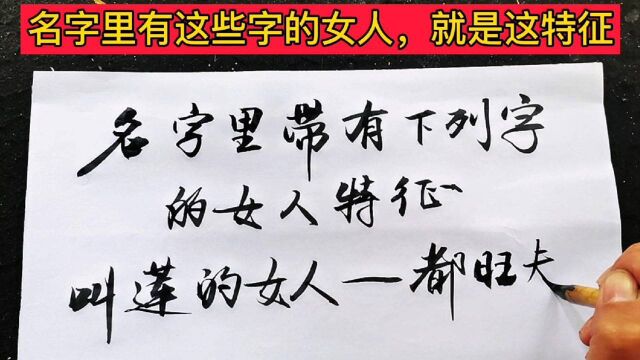 名字里有这些字的女人，就是这特征
名字里带有下列字
的女人特征
叫莲的女人一都旺夫